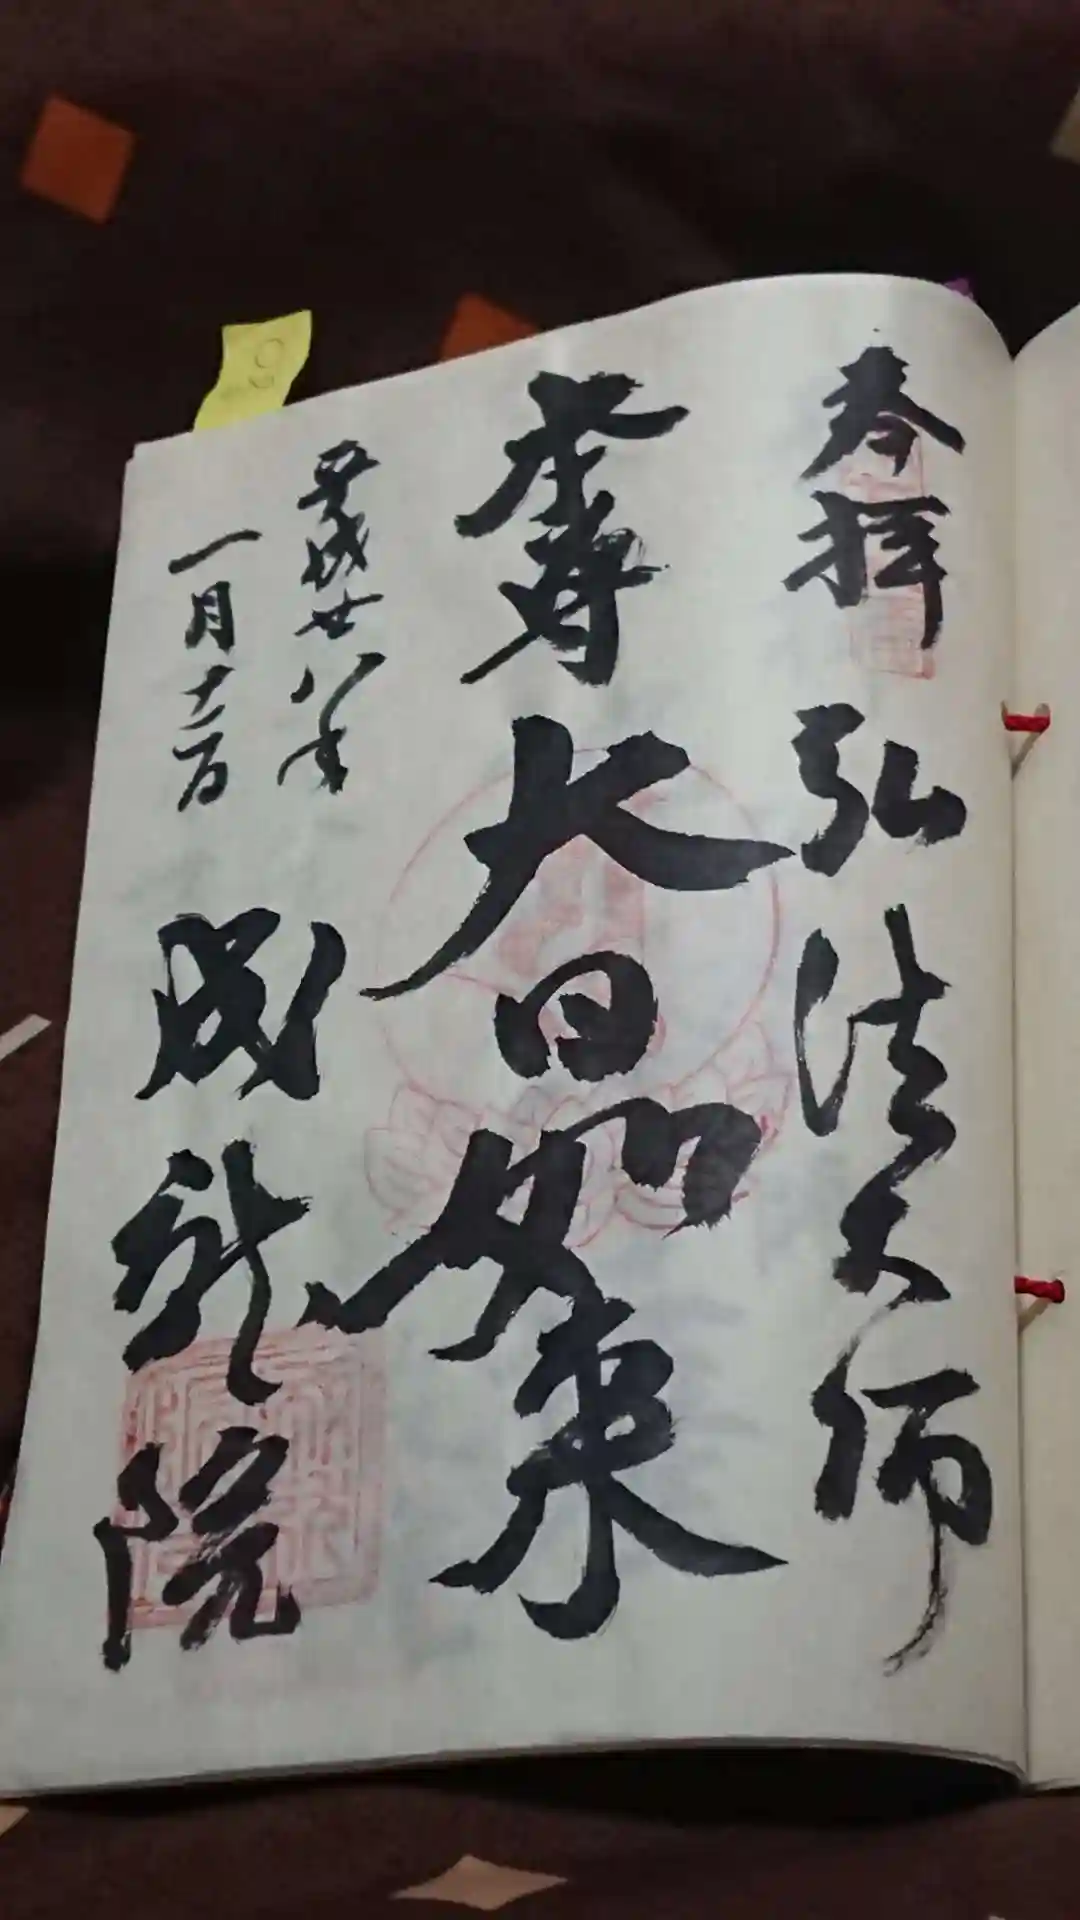 奉拝 弘法大師
本尊 大日如来
平成廿八年
一月十二日
成就院